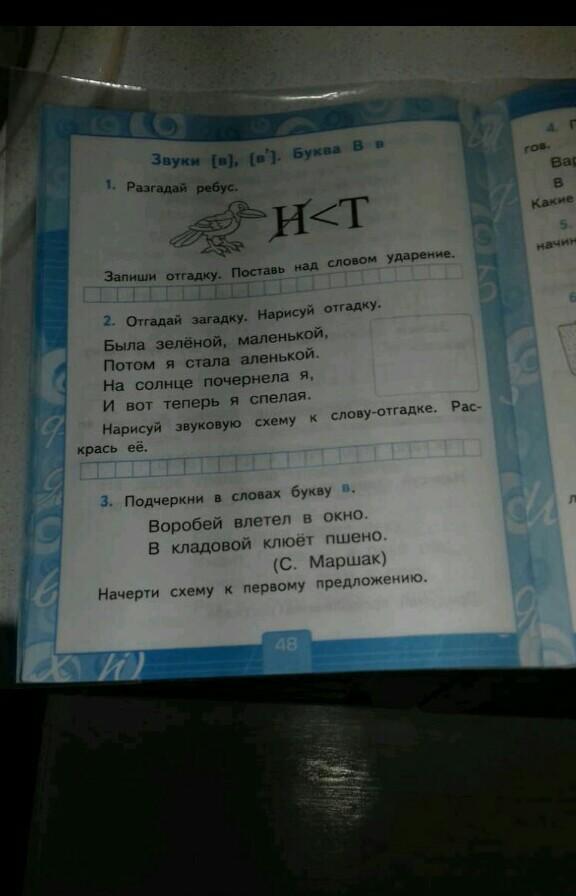 Звуки [в], [в']. Буква В в
1. Разгадай ребус.
И<Т
Запиши отгадку. Поставь над словом ударение.
2. Отгадай загадку. Нарисуй отгадку.
Была зелёной, маленькой,
Потом я стала аленькой.
На солнце почернела я,
И вот теперь я спелая.
Нарисуй звуковую схему к слову-отгадке. Рас-
крась её.
3. Подчеркни в словах букву в.
Воробей влетел в окно.
В кладовой клюёт пшено.
(С. Маршак)
Начерти схему к первому предложению.
48
х й)
4.
гов.
Вар
В
Какие
5.
начин
6